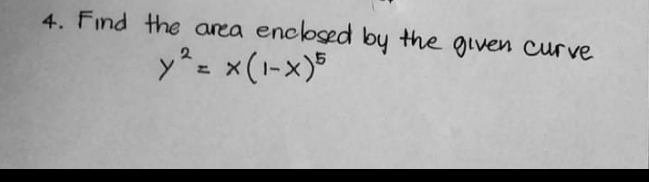 4. Find the area enclosed by the given curve
y² = x(1-x)⁵